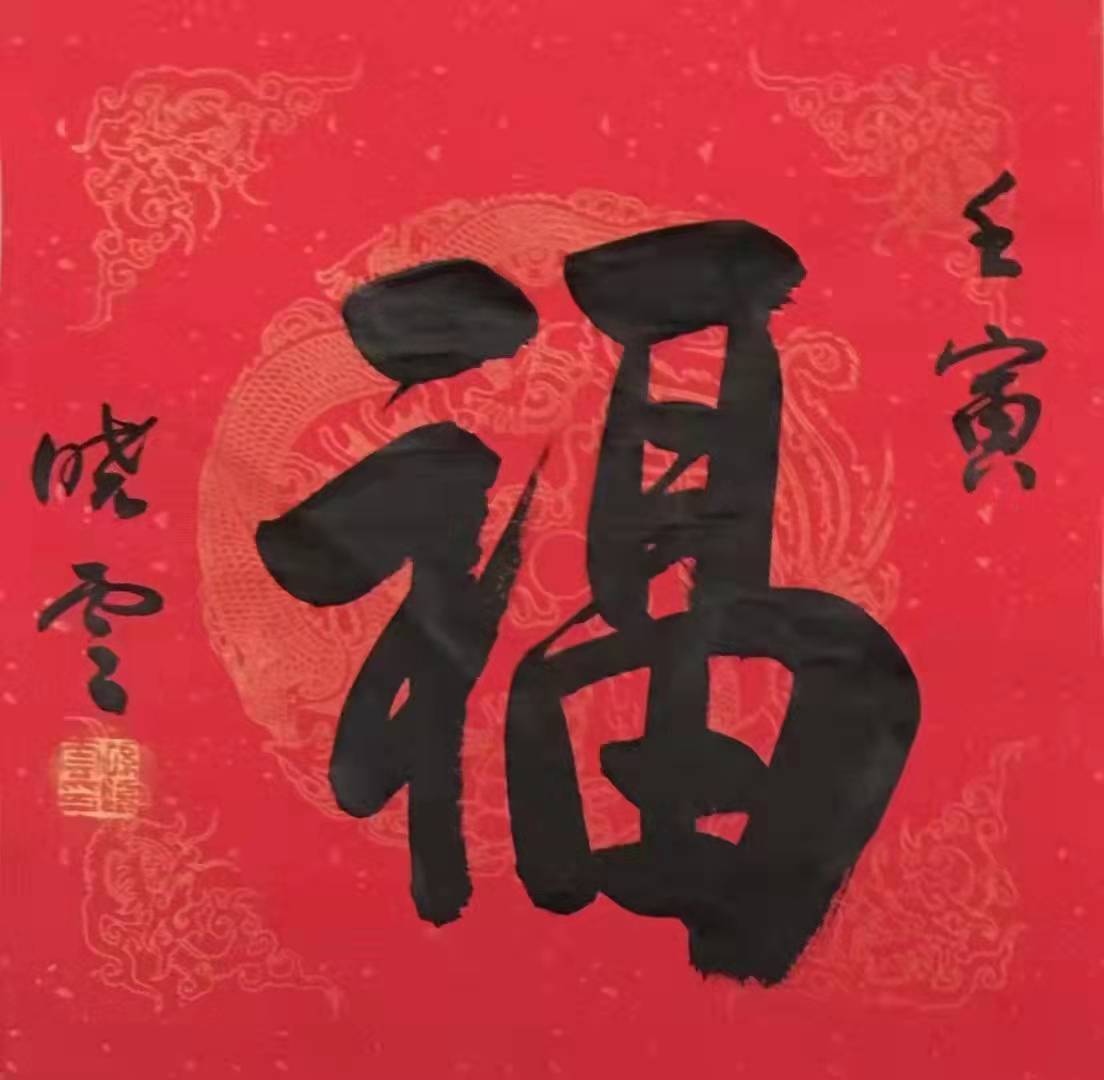 壬寅
福
晓云